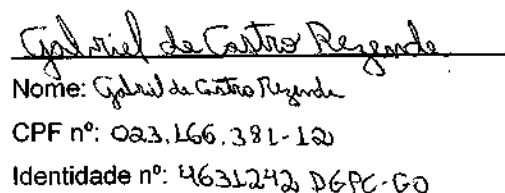 Gabriel de Castro Rezende
Nome: Gabriel de Castro Rezende
CPF nº: 023.166.381-12
Identidade nº: 4631242 DGPC-GO